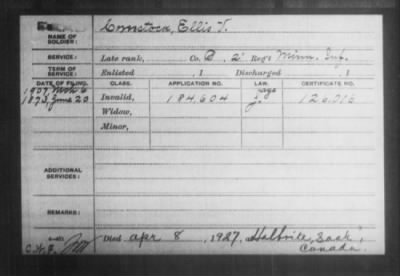 NAME OF SOLDIER: Comstock, Ellis V.
SERVICE: Late rank, Co. B, 2" Reg't Minn. Inf.
TERM OF SERVICE: Enlisted , 1 Discharged , 1
DATE OF FILING. CLASS. APPLICATION NO. LAW. CERTIFICATE NO.
1907, Mch 6
1873, June 23 Invalid, 184.604 126.016
Widow,
Minor,
ADDITIONAL SERVICES:
REMARKS:
C.W.P.
Died Apr 8, 1927, Halbrite, Sask,
Canada.